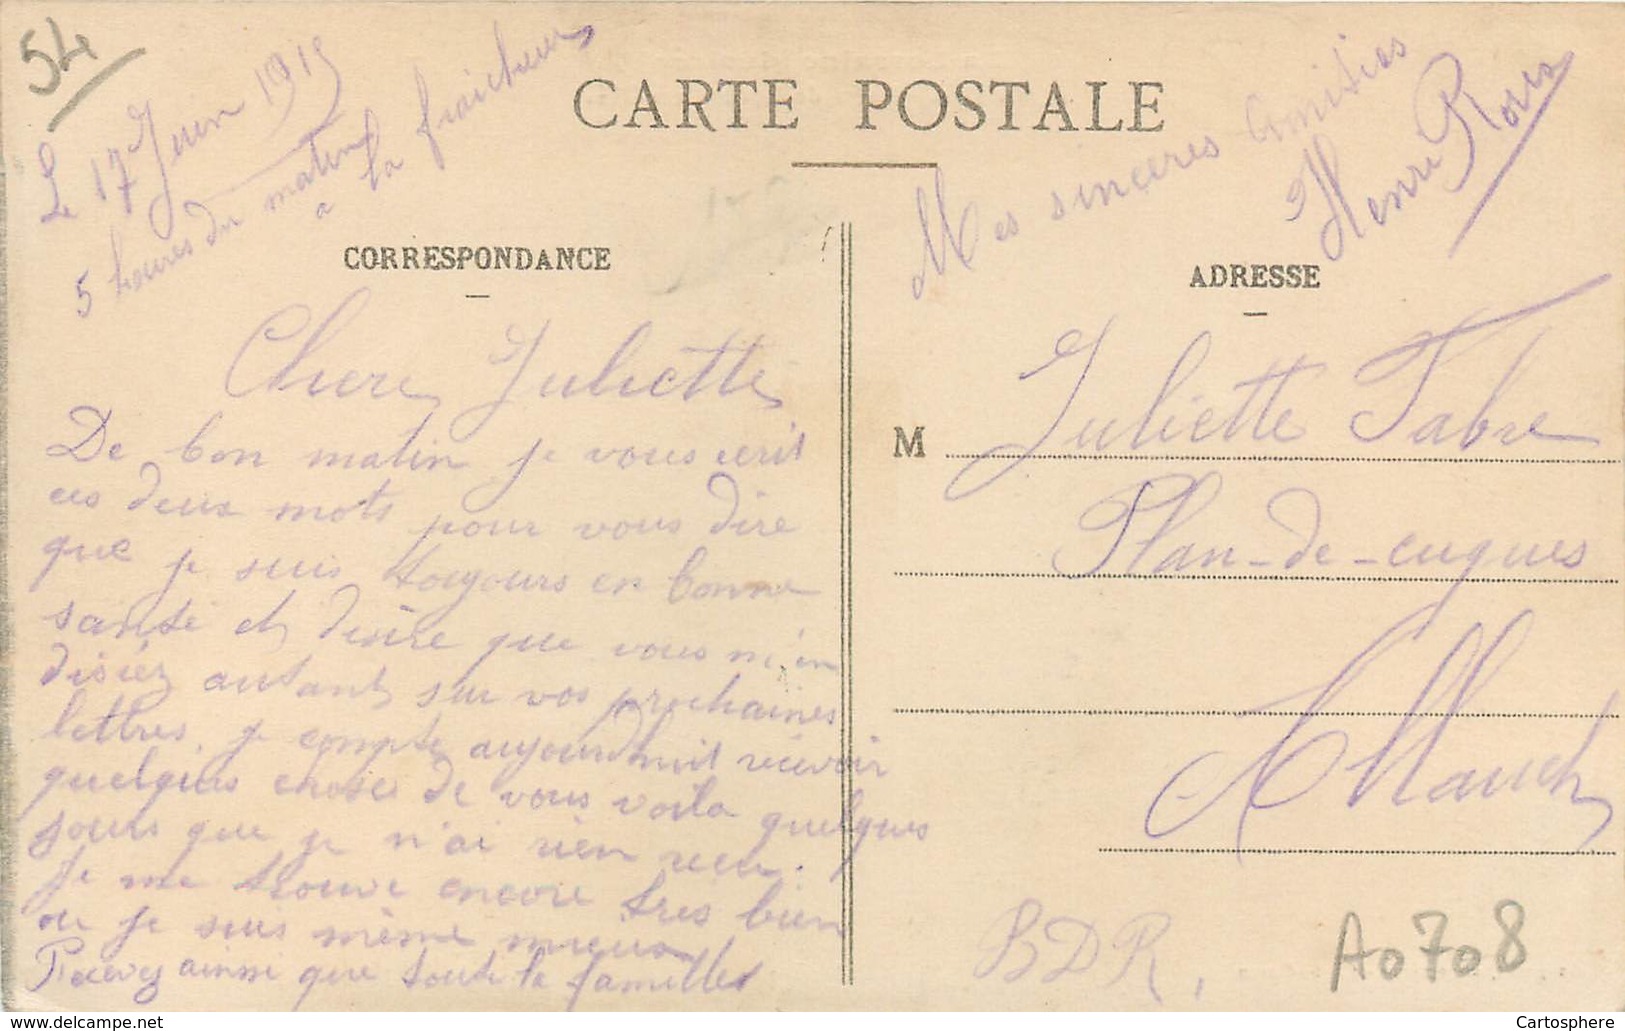 54
Le 17 Juin 1915
5 heures du matin
a la fraicheur
CARTE POSTALE
CORRESPONDANCE
Chere Juliette
De bon matin je vous ecrit
ces deux mots pour vous dire
que je suis toujours en bonne
santé et desire que vous m'en
disiéz autant sur vos prochaines
lettres, je compte aujourd'huit recevoir
quelques choses de vous voila quelques
jours que je n'ai rien recu.
Je me trouve encore tres bien
ou je suis même mieux
Recevez ainsi que toute la famille
Mes sinceres amitiés
Henri Roux
ADRESSE
M Juliette Fabre
Plan-de-cuques
Allauch
BDR,
A0708
Cartosphere.com